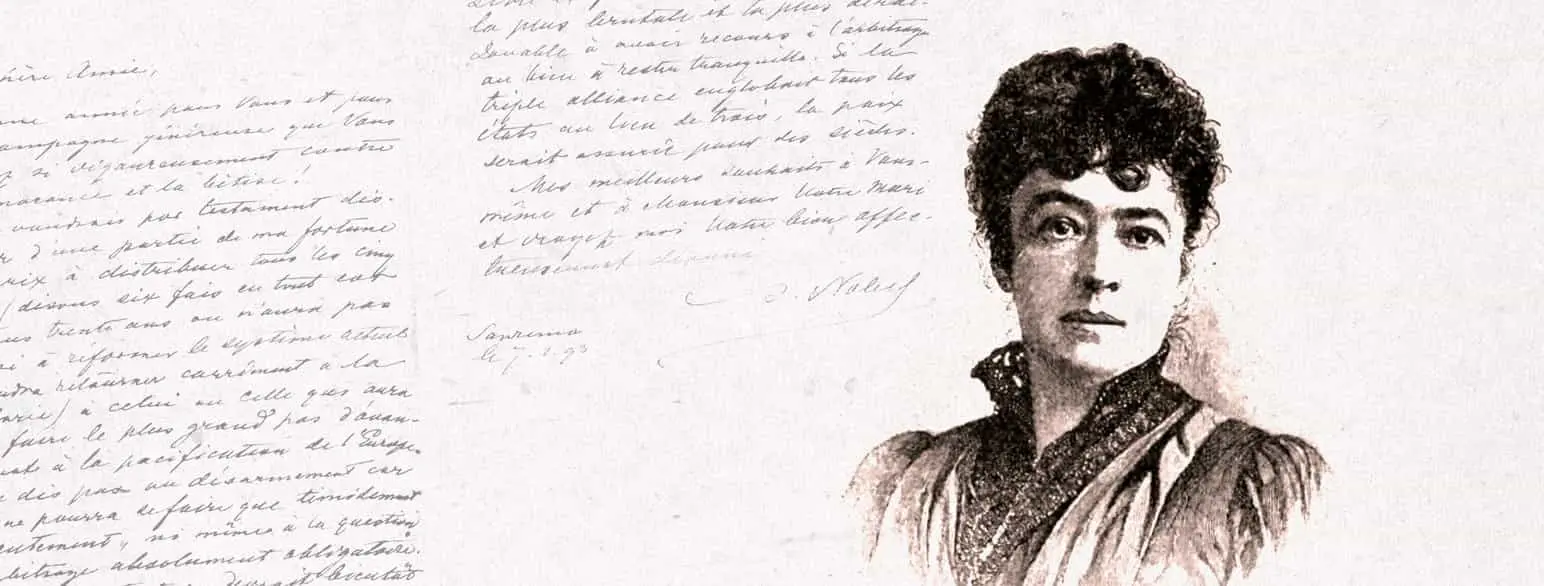 Chère Amie,
une année pour Vous et pour
campagne généreuse que Vous
si vigoureusement contre
ignorance et la bêtise!
voudrais par testament dis-
d'une partie de ma fortune
prix à distribuer tous les cinq
(disons six fois en tout car
trente ans on n'aura pas
à réformer le système actuel
retourner carrément à la
) à celui ou celle qui aura
faire le plus grand pas d'avan-
à la pacification de l'Europe.
dis pas au désarmement car
ne pourra se faire que timidement
lentement, ni même à la question
arbitrage absolument obligatoire.
devrait bientôt
la plus brutale et la plus dérai-
sonnable à avoir recours à l'arbitrage
ou bien à rester tranquille. Si la
triple alliance englobait tous les
états au lieu de trois, la paix
serait assurée pour des siècles.
Mes meilleurs souhaits à Vous-
même et à Monsieur Votre Mari
et croyez moi Votre bien affec-
tueusement dévoué
A. Nobel
Sanremo
le 7.1.93